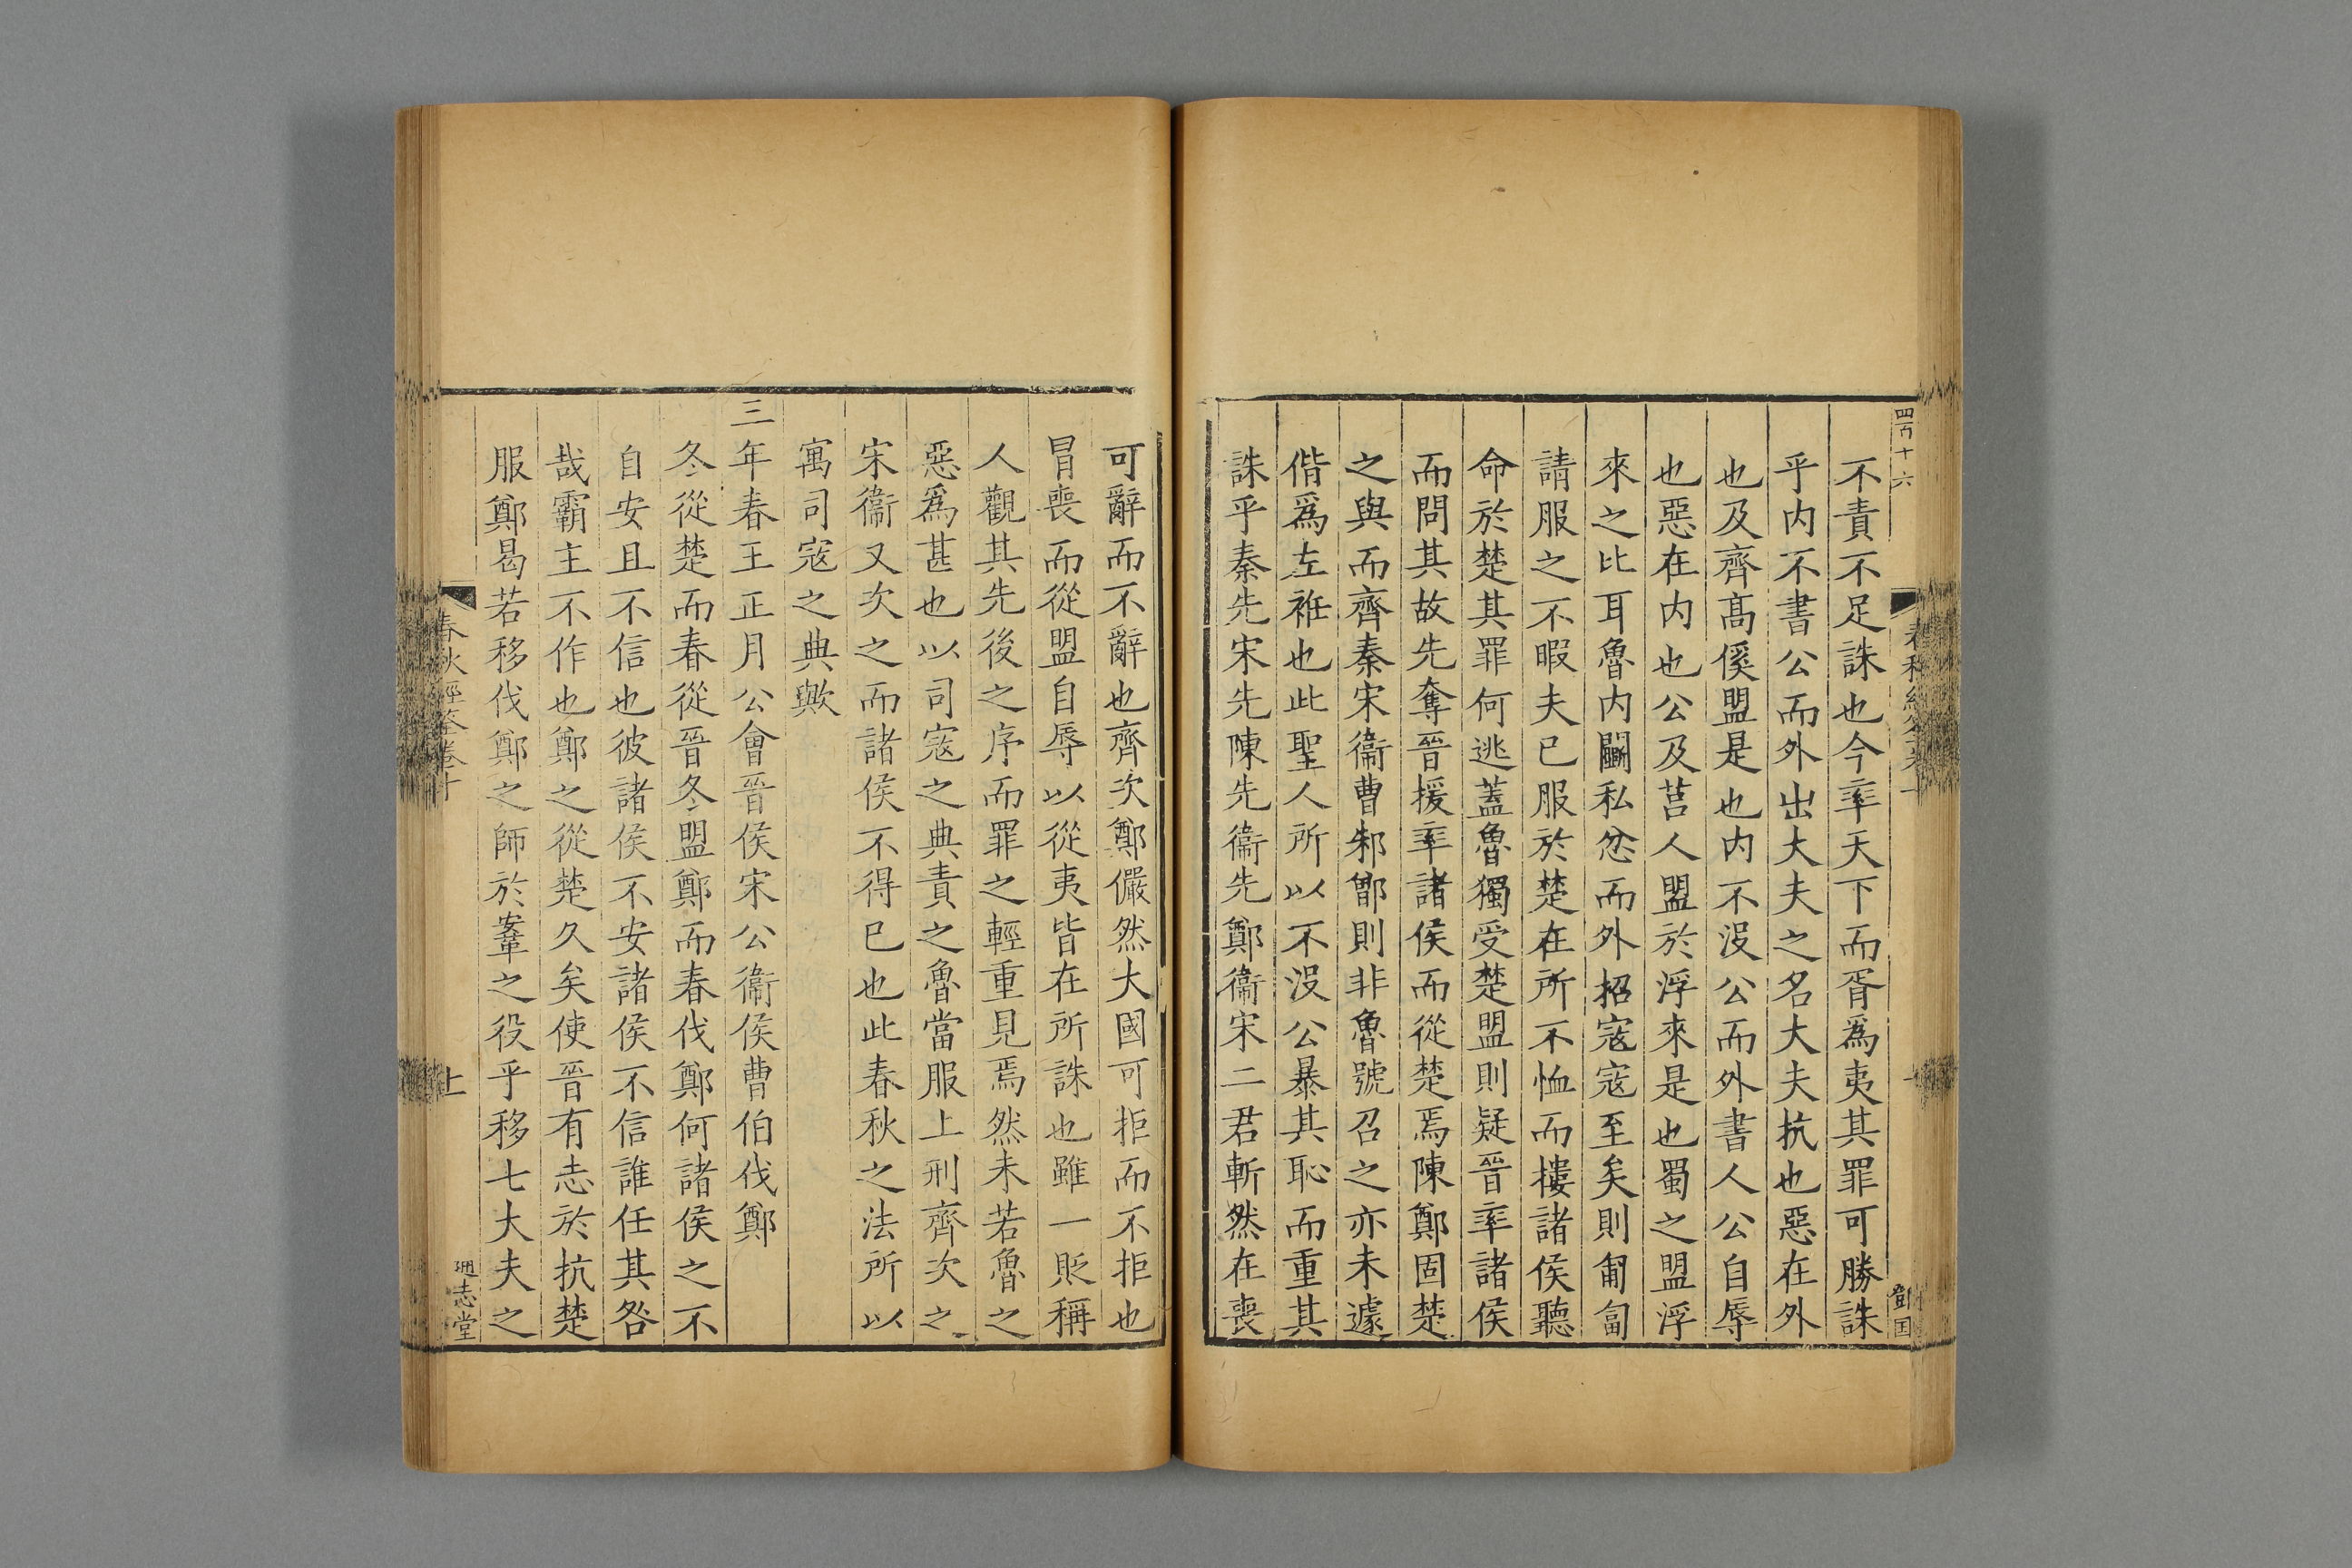 四百十六
鄧国
不責不足誅也今率天下而胥爲夷其罪可勝誅
乎内不書公而外出大夫之名大夫抗也惡在外
也及齊高傒盟是也内不沒公而外書人公自辱
也惡在内也公及莒人盟於浮來是也蜀之盟浮
來之比耳魯内鬭私忿而外招寇寇至矣則匍匐
請服之不暇夫已服於楚在所不恤而摟諸侯聽
命於楚其罪何逃蓋魯獨受楚盟則疑晉率諸侯
而問其故先奪晉援率諸侯而從楚焉陳鄭固楚
之與而齊秦宋衞曹邾鄫則非魯號召之亦未遽
偕爲左袵也此聖人所以不沒公暴其恥而重其
誅乎秦先宋先陳先衞先鄭衞宋二君斬然在喪
可辭而不辭也齊次鄭儼然大國可拒而不拒也
冒喪而從盟自辱以從夷皆在所誅也雖一貶稱
人觀其先後之序而罪之輕重見焉然未若魯之
惡爲甚也以司寇之典責之魯當服上刑齊次之
宋衞又次之而諸侯不得已也此春秋之法所以
寓司寇之典歟
三年春王正月公會晉侯宋公衞侯曹伯伐鄭
冬從楚而春從晉冬盟鄭而春伐鄭何諸侯之不
自安且不信也彼諸侯不安諸侯不信誰任其咎
哉霸主不作也鄭之從楚久矣使晉有志於抗楚
服鄭曷若移伐鄭之師於鞌之役乎移七大夫之
春秋經筌卷十
上
通志堂